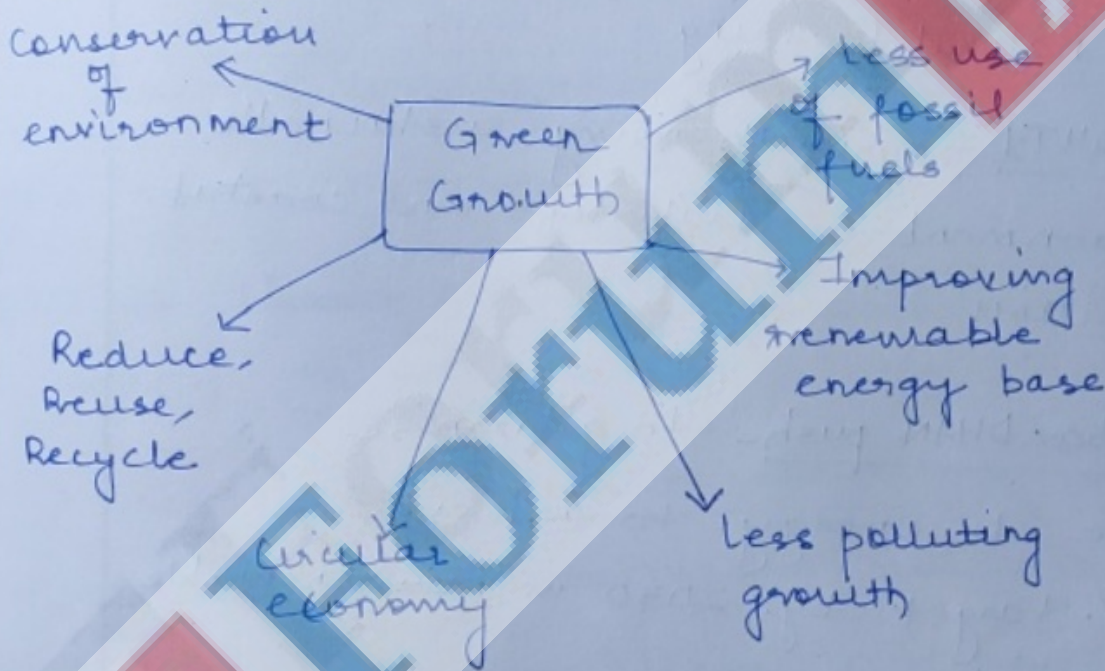 Conservation
of
environment
Less use
of fossil
fuels
Green
Growth
Improving
renewable
energy base
Reduce,
Reuse,
Recycle
Circular
economy
Less polluting
growth
Forum